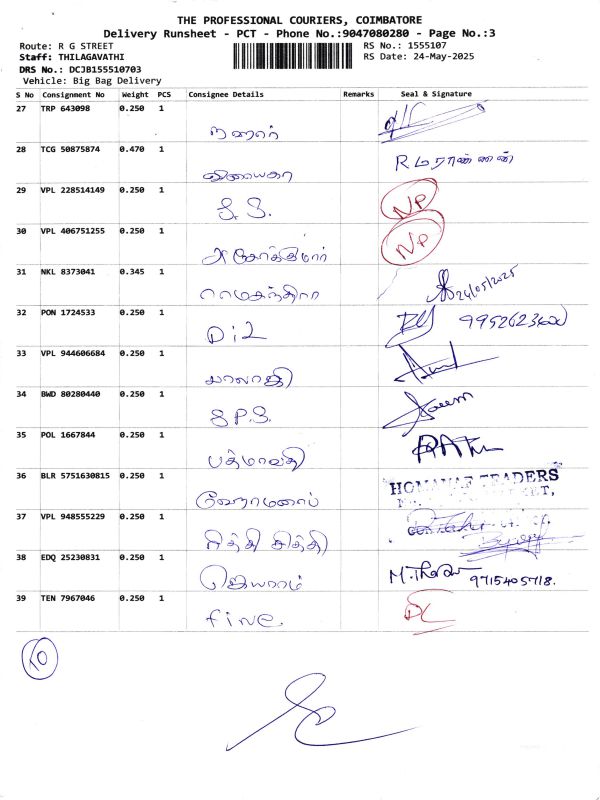 THE PROFESSIONAL COURIERS, COIMBATORE
Delivery Runsheet - PCT - Phone No.:9047080280 - Page No.:3
Route: R G STREET
RS No.: 1555107
Staff: THILAGAVATHI
RS Date: 24-May-2025
DRS No.: DCJB155510703
Vehicle: Big Bag Delivery
S No Consignment No Weight PCS Consignee Details Remarks Seal & Signature
27 TRP 643098 0.250 1
28 TCG 50875874 0.470 1
விநாயகா
29 VPL 228514149 0.250 1 NP
S. S.
30 VPL 406751255 0.250 1 NP
அசோக்குமார்
31 NKL 8373041 0.345 1
ராமசந்திரா 24/05/2025
32 PON 1724533 0.250 1
Dil
33 VPL 944606684 0.250 1
பாலாஜி
34 BWD 80280440 0.250 1
S.P.S.
35 POL 1667844 0.250 1
பத்மாவதி
36 BLR 5751630815 0.250 1 TRADERS
37 VPL 948555229 0.250 1
சித்தி
38 EDQ 25230831 0.250 1
ஜெயராம் 9715405718.
39 TEN 7967046 0.250 1 DL
fine.
10